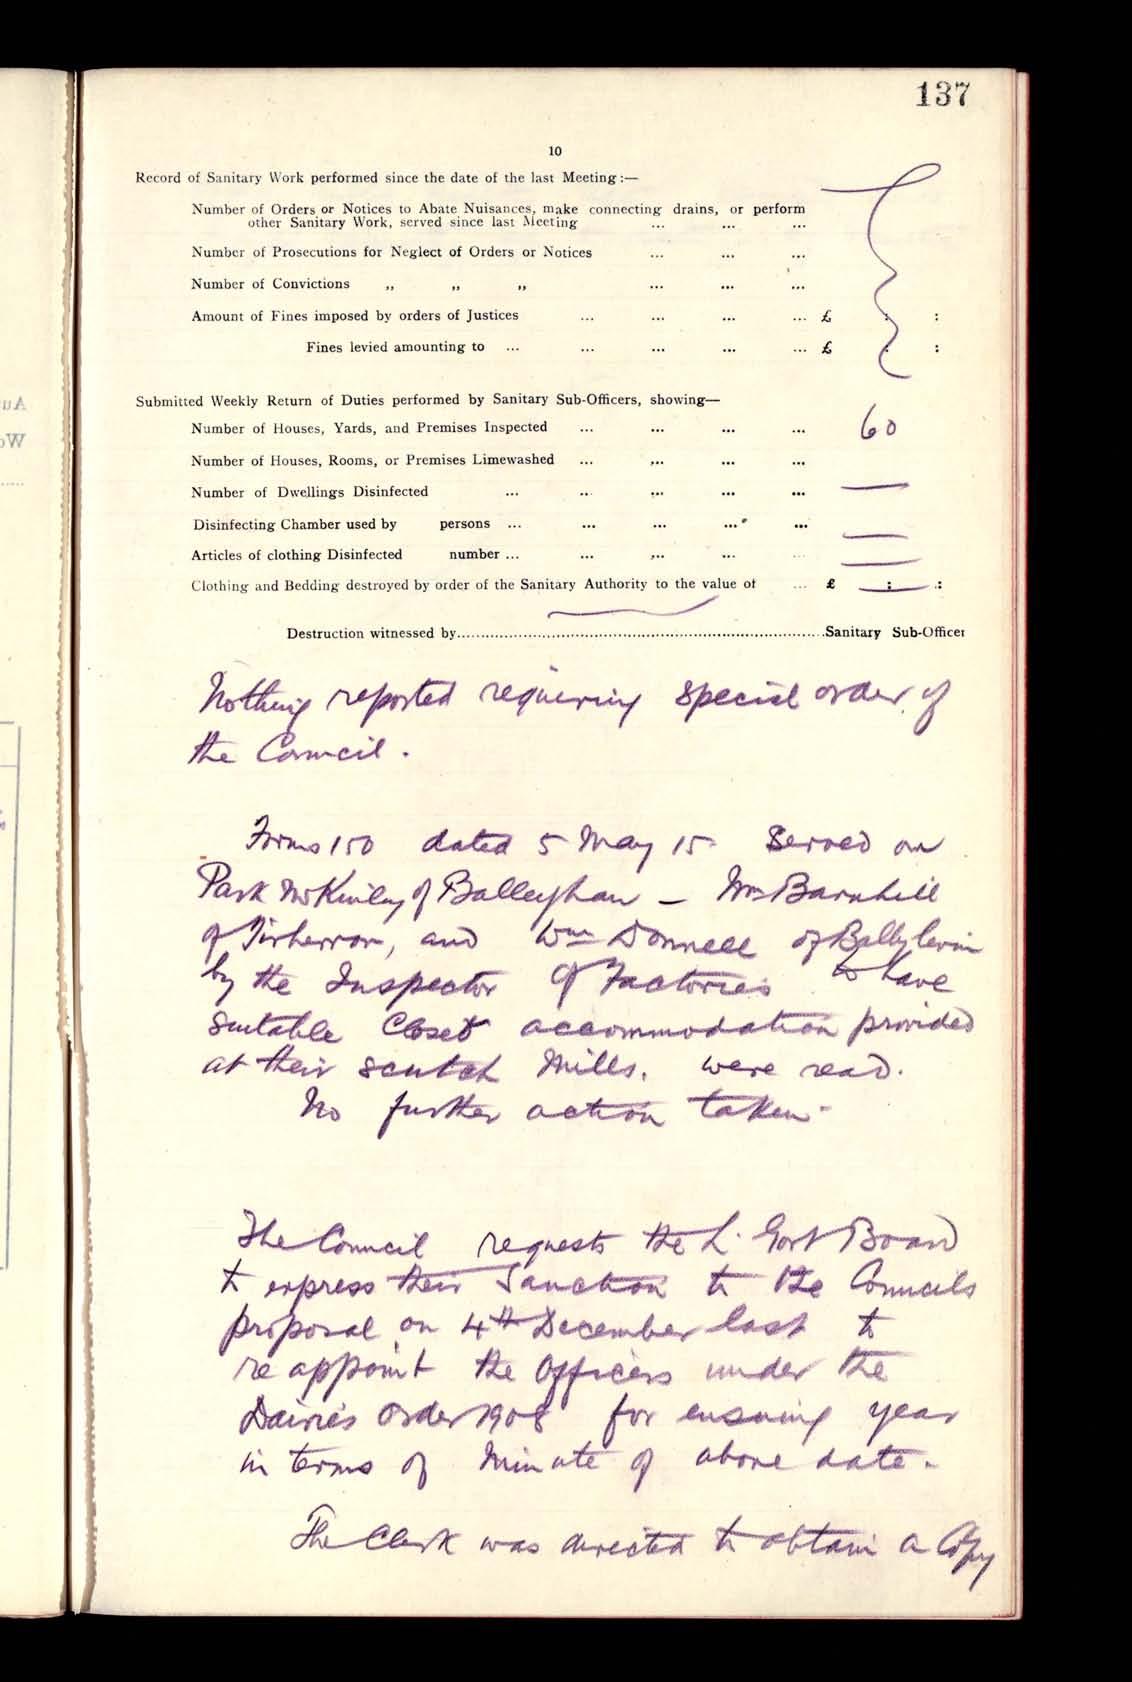 137
10
Record of Sanitary Work performed since the date of the last Meeting :—
Number of Orders or Notices to Abate Nuisances, make connecting drains, or perform
other Sanitary Work, served since last Meeting ... ... ...
Number of Prosecutions for Neglect of Orders or Notices ... ... ...
Number of Convictions „ „ „ ... ... ...
Amount of Fines imposed by orders of Justices ... ... ... ... £ : :
Fines levied amounting to ... ... ... ... ... £ : :
Submitted Weekly Return of Duties performed by Sanitary Sub-Officers, showing—
Number of Houses, Yards, and Premises Inspected ... ... ... ... 60
Number of Houses, Rooms, or Premises Limewashed ... ... ... ...
Number of Dwellings Disinfected ... ... ... ... ... —
Disinfecting Chamber used by persons ... ... ... ... ... —
Articles of clothing Disinfected number ... ... ... ... ... —
Clothing and Bedding destroyed by order of the Sanitary Authority to the value of ... £ — : :
Destruction witnessed by..............................Sanitary Sub-Officer
Nothing reported requiring special order of
the Council.
Forms 150 dated 5 May 15 Served on
Park McKinley of Balleyhan — Wm Barnhill
of and Wm Donnell of
by the Inspector of Factories to have
suitable Closet accommodation provided
at their scutch Mills. were read.
No further action taken.
The Council requests the L. Govt Board
to express their Sanction to the Councils
proposal on 4th December last to
re appoint the Officers under the
Dairies Order 1908 for ensuing year
in terms of Minute of above date.
The Clerk was directed to obtain a Copy